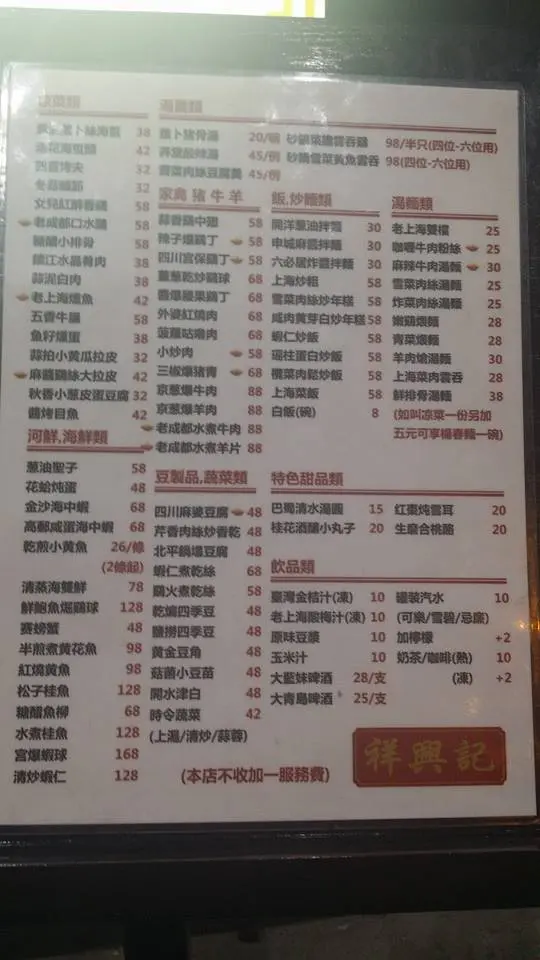 涼菜類
38
42
四喜烤夫 32
32
女兒紅醉香鷄 58
老成都口水鷄 58
糖醋小排骨 58
鎮江水晶肴肉 38
蒜泥白肉 38
老上海燻魚 42
五香牛腱 58
魚籽燻蛋 38
蒜拍小黃瓜拉皮 32
麻醬鷄絲大拉皮 42
秋香小蔥皮蛋豆腐 32
醬烤目魚 42
河鮮,海鮮類
蔥油聖子 58
花蛤炖蛋 48
金沙海中蝦 68
高郵咸蛋海中蝦 68
乾煎小黃魚 26/條
(2條起)
清蒸海雙鮮 78
鮮鮑魚煀鷄球 128
賽螃蟹 48
半煎煮黃花魚 98
紅燒黃魚 98
松子桂魚 128
糖醋魚柳 68
水煮桂魚 128
宮爆蝦球 168
清炒蝦仁 128
湯羹類
蘿卜豬骨湯 20/碗
酸辣湯 45/例
薺菜肉絲豆腐羹 45/例
砂鍋菜膽雲吞鷄 98/半只(四位-六位用)
砂鍋雪菜黃魚雲吞 98(四位-六位用)
家禽 豬 牛 羊
蒜香鷄中翅 58
辣子爆鷄丁 58
四川宮保鷄丁 58
薑蔥乾炒鷄球 68
醬爆腰果鷄丁 68
外婆紅燒肉 68
菠蘿咕嚕肉 68
小炒肉 58
三椒爆豬青 68
京蔥爆牛肉 88
京蔥爆羊肉 88
老成都水煮牛肉 88
老成都水煮羊片 88
豆製品,蔬菜類
四川麻婆豆腐 48
芹香肉絲炒香乾 48
北平鍋塌豆腐 48
蝦仁煮乾絲 68
鷄火煮乾絲 58
乾煸四季豆 48
鹽撈四季豆 48
黃金豆角 48
菇菌小豆苗 48
開水津白 48
時令蔬菜 42
(上湯/清炒/蒜蓉)
飯,炒麵類
開洋蔥油拌麵 30
申城麻醬拌麵 30
六必居炸醬拌麵 30
上海炒粗 58
雪菜肉絲炒年糕 58
咸肉黃芽白炒年糕 58
蝦仁炒飯 58
瑤柱蛋白炒飯 58
欖菜肉鬆炒飯 58
上海菜飯 58
白飯(碗) 8
湯麵類
老上海雙檔 25
咖喱牛肉粉絲 25
麻辣牛肉湯麵 30
雪菜肉絲湯麵 25
炸菜肉絲湯麵 25
嫩鷄煨麵 28
青菜煨麵 28
羊肉熗湯麵 30
上海菜肉雲吞 28
鮮排骨湯麵 38
(如叫凉菜一份另加
五元可享楊春麵一碗)
特色甜品類
巴蜀清水湯圓 15
桂花酒釀小丸子 20
紅棗炖雪耳 20
生磨合桃酪 20
飲品類
臺灣金桔汁(凍) 10
老上海酸梅汁(凍) 10
原味豆漿 10
玉米汁 10
大藍妹啤酒 28/支
大青島啤酒 25/支
罐裝汽水 10
(可樂/雪碧/忌廉)
加檸檬 +2
奶茶/咖啡(熱) 10
(凍) +2
(本店不收加一服務費)
祥興記